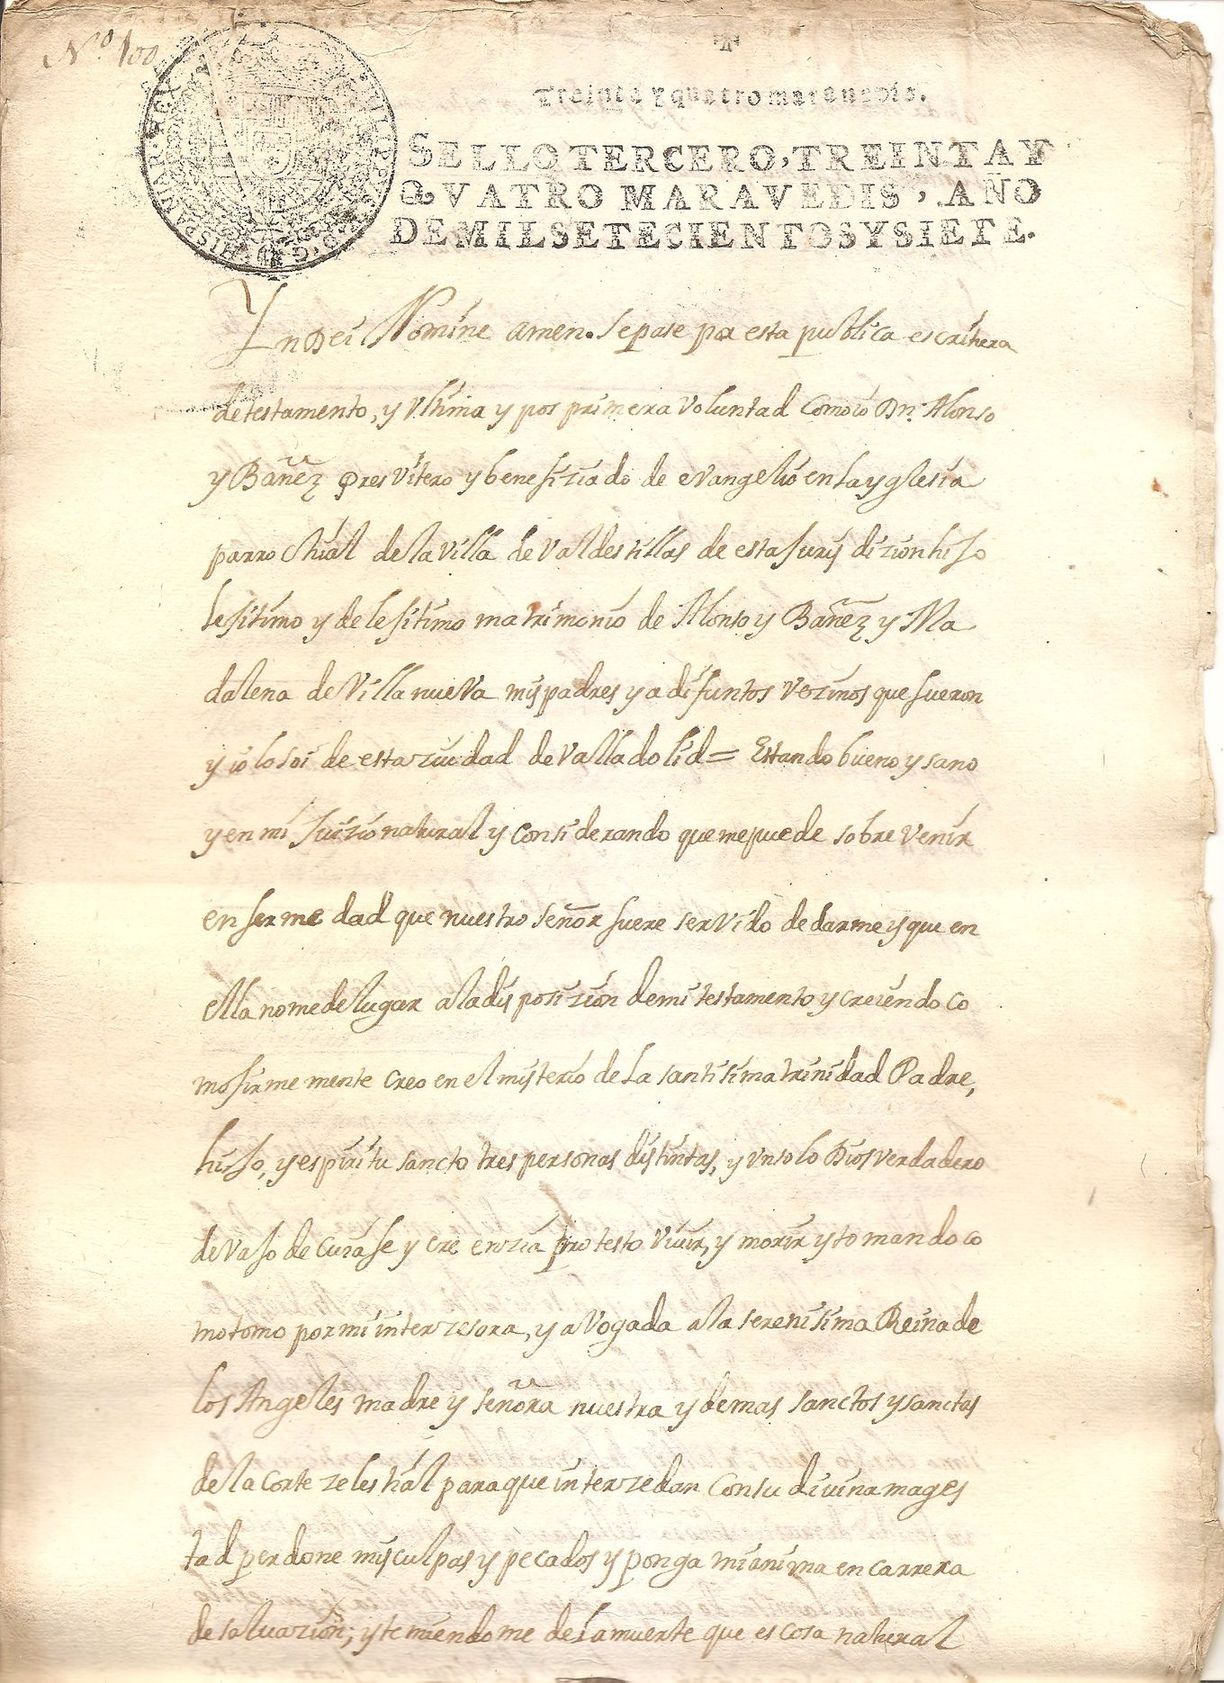 Nº 100
Treinta y quatro maravedis.
SELLO TERCERO, TREINTA Y
QVATRO MARAVEDIS, AÑO
DE MIL SETECIENTOS Y SIETE.
PHILIPPUS V D G HISPANIAR REX
Yn Dei Nomine amen. sepase por esta publica escritura
de testamento, y Vltima y pos primera Voluntad Como io Dn. Alonso
y Bañez presvitero y benefiziado de evangelio en la yglesia
parrochial de la Villa de Valdestillas de esta Jurisdizion hijo
lejitimo y de lejitimo matrimonio de Alonso y Bañez y Ma
dalena de Villanueva mis padres ya difuntos Vezinos que fueron
y io lo soi de esta ziudad de Valladolid = Estando bueno y sano
y en mi Juizio natural y Considerando que me puede sobrevenir
enfermedad que nuestro señor fuere servido de darme y que en
ella no me de lugar a la disposizion de mi testamento y creiendo co
mo firmemente Creo en el misterio de La santisima trinidad Padre,
hijo, y espiritu sancto tres personas distintas, y Vn solo Dios verdadero
devajo de Cuia fe y cre enzia protesto Viuir, y morir y tomando co
mo tomo por mi interzesora, y aVogada a la serenisima Reina de
los Angeles madre y señora nuestra y demas sanctos y sanctas
de la Corte zelestial para que interzedan Con su diuina mages
tad perdone mis culpas y pecados y ponga mi anima en carrera
de saluazion; y temiendome de La muerte que es cosa natural